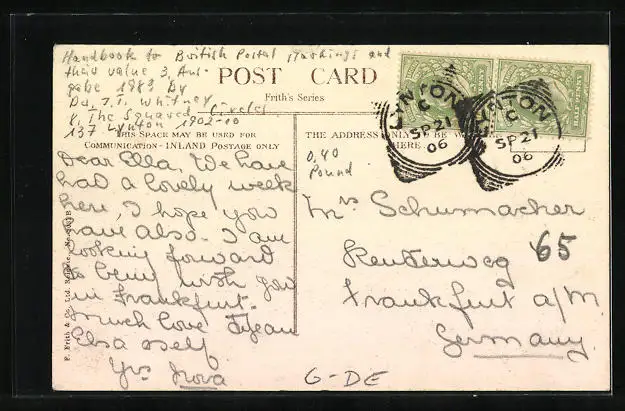 Handbook to British Postal Markings and
their value 3. Aus-
gabe 1983 by
Dr. J.T. Whitney
8. The Squared Circles
137 Lynton 1902-10
POST CARD
Frith's Series
THIS SPACE MAY BE USED FOR
COMMUNICATION - INLAND POSTAGE ONLY
THE ADDRESS ONLY TO BE
HERE
0,40
Pound
LYNTON
C
SP 21
06
LYNTON
C
SP 21
06
Dear Ella, We have
had a lovely week
here, I hope you
have also. I am
looking forward
to being with you
in Frankfurt.
Much love
Elsa & self
Yrs Nora
Mrs Schumacher
Reuterweg 65
Frankfurt a/M.
Germany.
F. Frith & Co., Ltd. Reigate.
G-DE